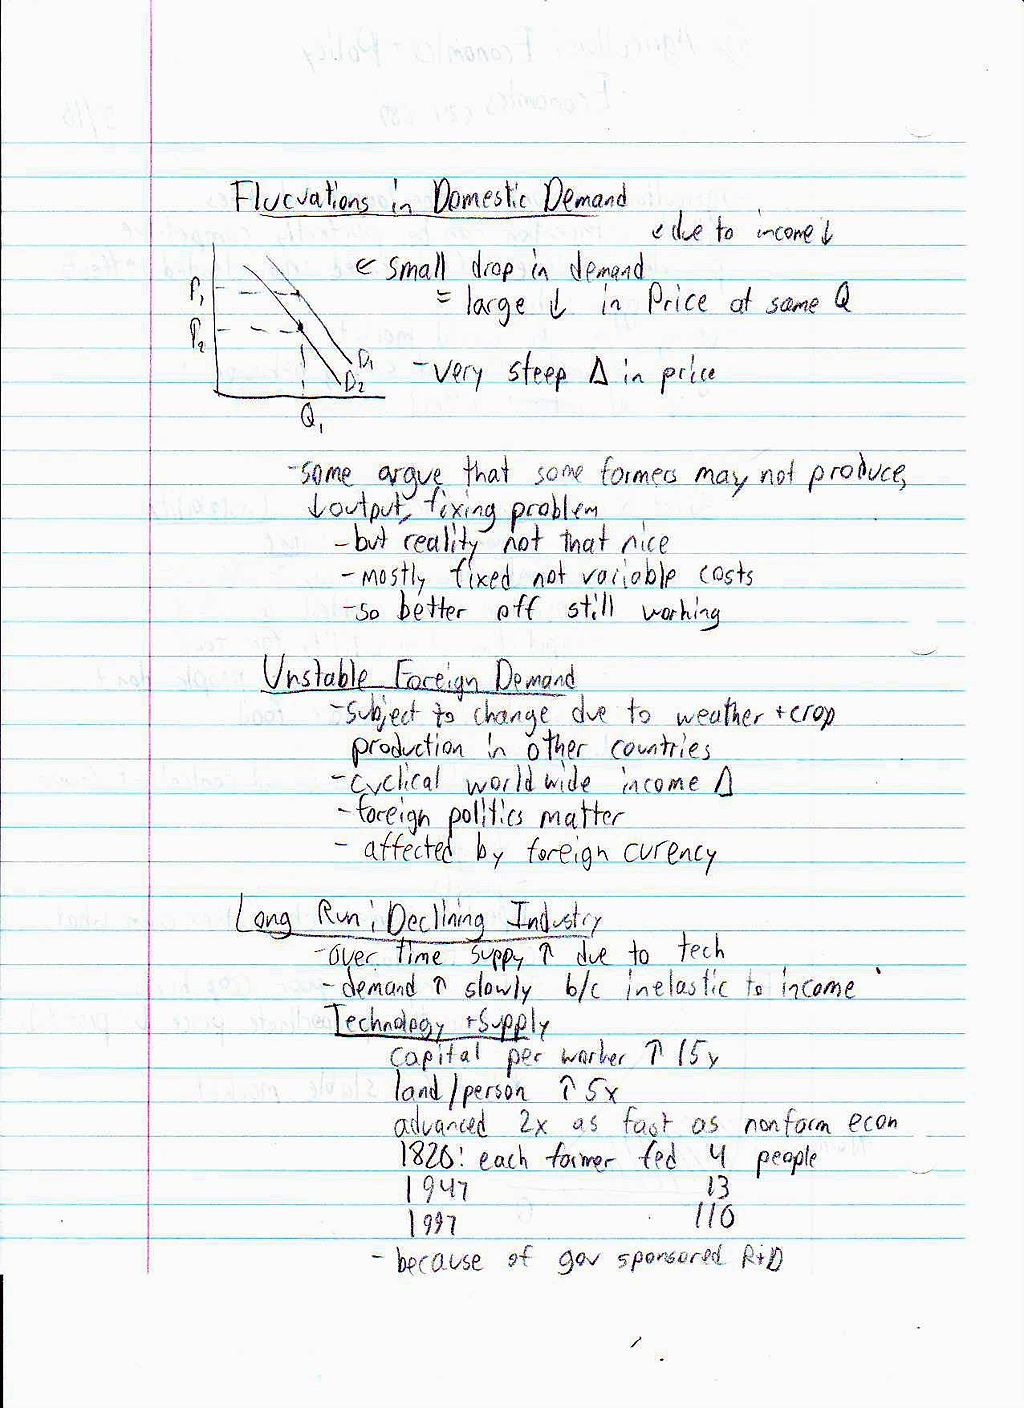 Flucuations in Domestic Demand
↙ due to income ↓
← small drop in demand
= large ↓ in Price at same Q
P1
P2
D1
D2
Q1
-very steep Δ in price
-some argue that some farmers may not produce,
↓output, fixing problem
-but reality not that nice
-mostly fixed not variable costs
-so better off still working
Unstable Foreign Demand
-subject to change due to weather + crop
production in other countries
-cyclical world wide income Δ
-foreign politics matter
- affected by foreign curency
Long Run: Declining Industry
-over time suppy ↑ due to tech
-demand ↑ slowly b/c inelastic to income
Technology + Supply
capital per worker ↑ 15x
land/person ↑ 5x
advanced 2x as fast as nonfarm econ
1820: each farmer fed 4 people
1947 13
1997 110
- because of gov sponsored R+D